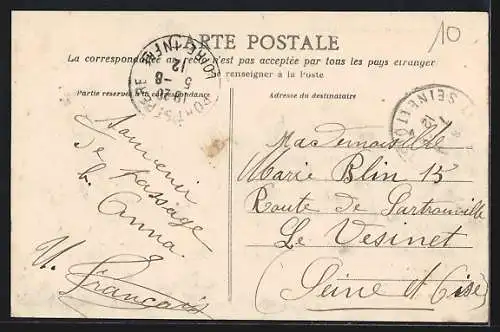 CARTE POSTALE
10
La correspondance au recto n'est pas acceptée par tous les pays étranger
Se renseigner à la Poste
Partie réservée à la correspondance
Adresse du destinataire
Souvenir
de passage
Anna
François
Mademoiselle
Marie Blin 15
Route de Sartrouville
Le Vesinet
(Seine et Oise)
PONT-ST-PIERRE
8
5
12
SEINE ET OISE
12